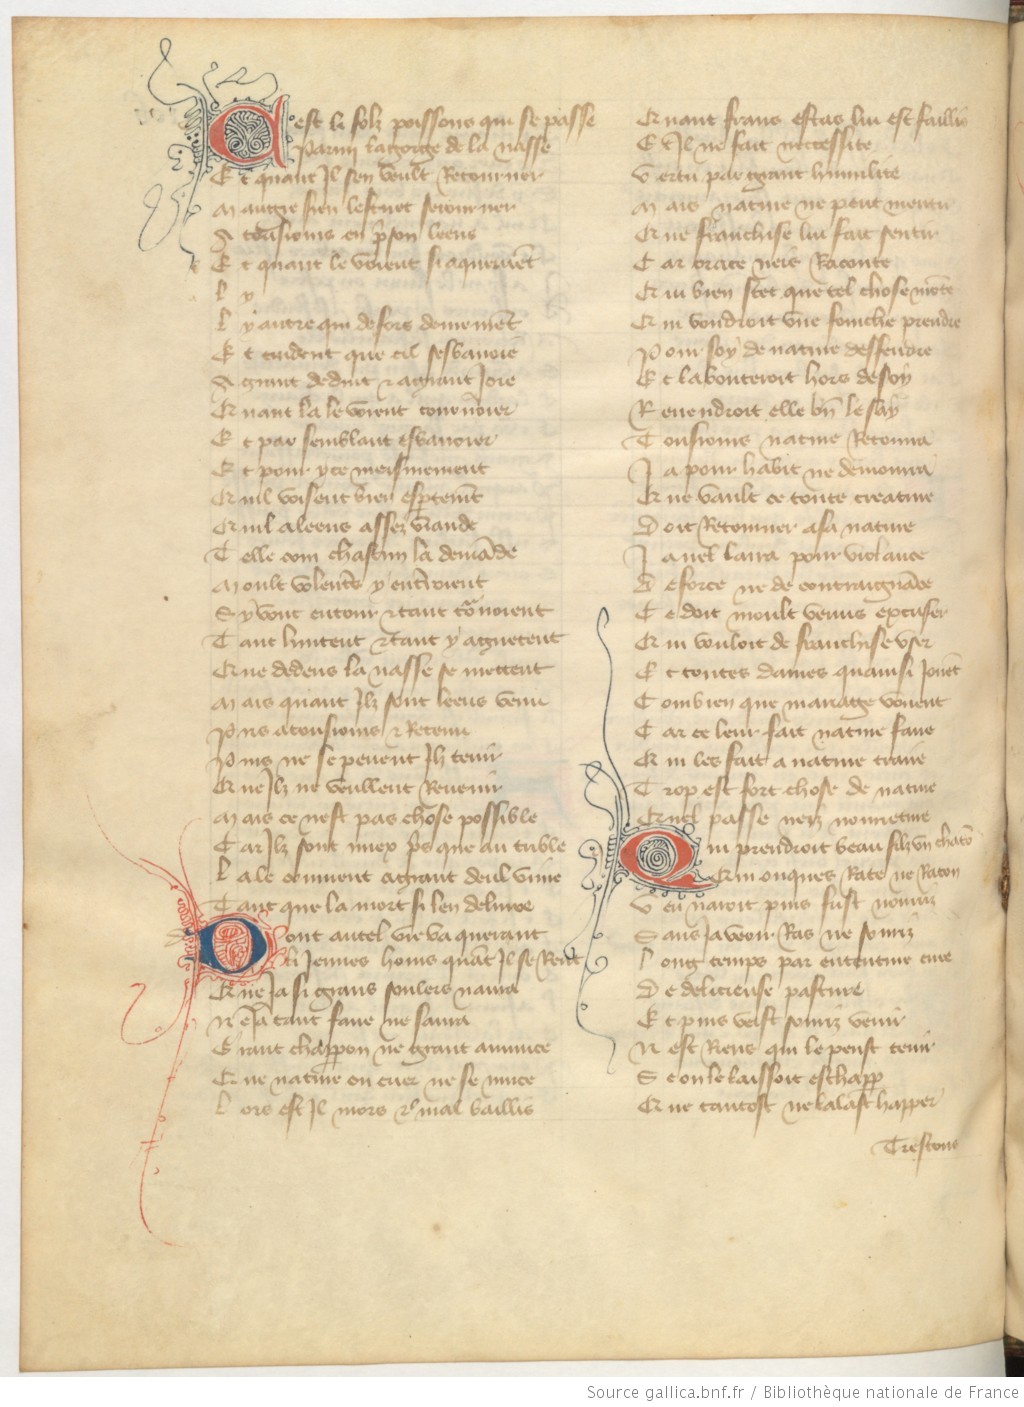 C est li folz poissons qui se passe
Parmi la gorge de la nasse
Et quant Il sen veult Retourner
Maugre sien lestuet seiourner
A tousiours en pson leens
Et quant le voient si aqueruet
L y
L y autre qui defors demeuret
Et cuident que cil sesbanoie
A grant deduit et agrant Joie
Quant la le voient tournoier
Et par semblant esbanoier
Et pour yce meismement
Quil voisent bien espertemt
Quil a leens assez viande
Telle com chascun la demade
Moult volentrs y entroient
Sy vont entour et tant tornoient
Tant hurtent et tant y aguetent
Que dedens la nasse se mettent
Mais quant Ilz sont leens venu
Pris a tousiours et Retenu
Puis ne se peuent Ilz tenir
Que Ilz ne veullent Revenir
Mais ce nest pas chose possible
Car Ilz sont miex prs que au tuble
La le couuient agrant deul viure
Tant que la mort si len deliure
Tout autel vie va querant
Li Jeunes homs quat Il se Rent
Que Ja si grans soulers naura
Ne Ja tant faire ne saura
Grant chappon ne grant aumuce
Que nature ou cuer ne se muce
Lors est Il mors et mal baillis
Quant frans estas lui est faillis
Et Il ne fait neccessite
Vertu par grant humilite
Mais nature ne peut mentir
Que franchise lui fait sentir
Car orace neis Raconte
Qui bien scet que tel chose mote
Qui vondroit vne fourche prendre
Pour soy de nature deffendre
Et la bouteroit hors de soy
Reuendroit elle bn le say
Tousiours nature Retourra
Ja pour habit ne demourra
Que vault ce toute creature
Doit Retourner a sa nature
Ja nel laira pour violance
De force ne de contraignace
Ce doit moult venus excuser
Qui vouloit de franchise vser
Et toutes dames quainsi Jouet
Combien que mariage vouent
Car ce leur fait nature faire
Qui les fait a nature traire
Trop est fort chose de nature
Quel passe neiz nourreture
Qui prendroit beau filz vn chato
Qui onques Rate ne Raton
Veu nauroit puis fust nourriz
Sans Ja veoir Ras ne souriz
Long temps par ententiue cure
De delicieuse pasture
Et puis veist souriz venir
Nest Riens qui le peust tenir
Se on le laissoit eschapp
Que tantost ne lalast happer
Trestous